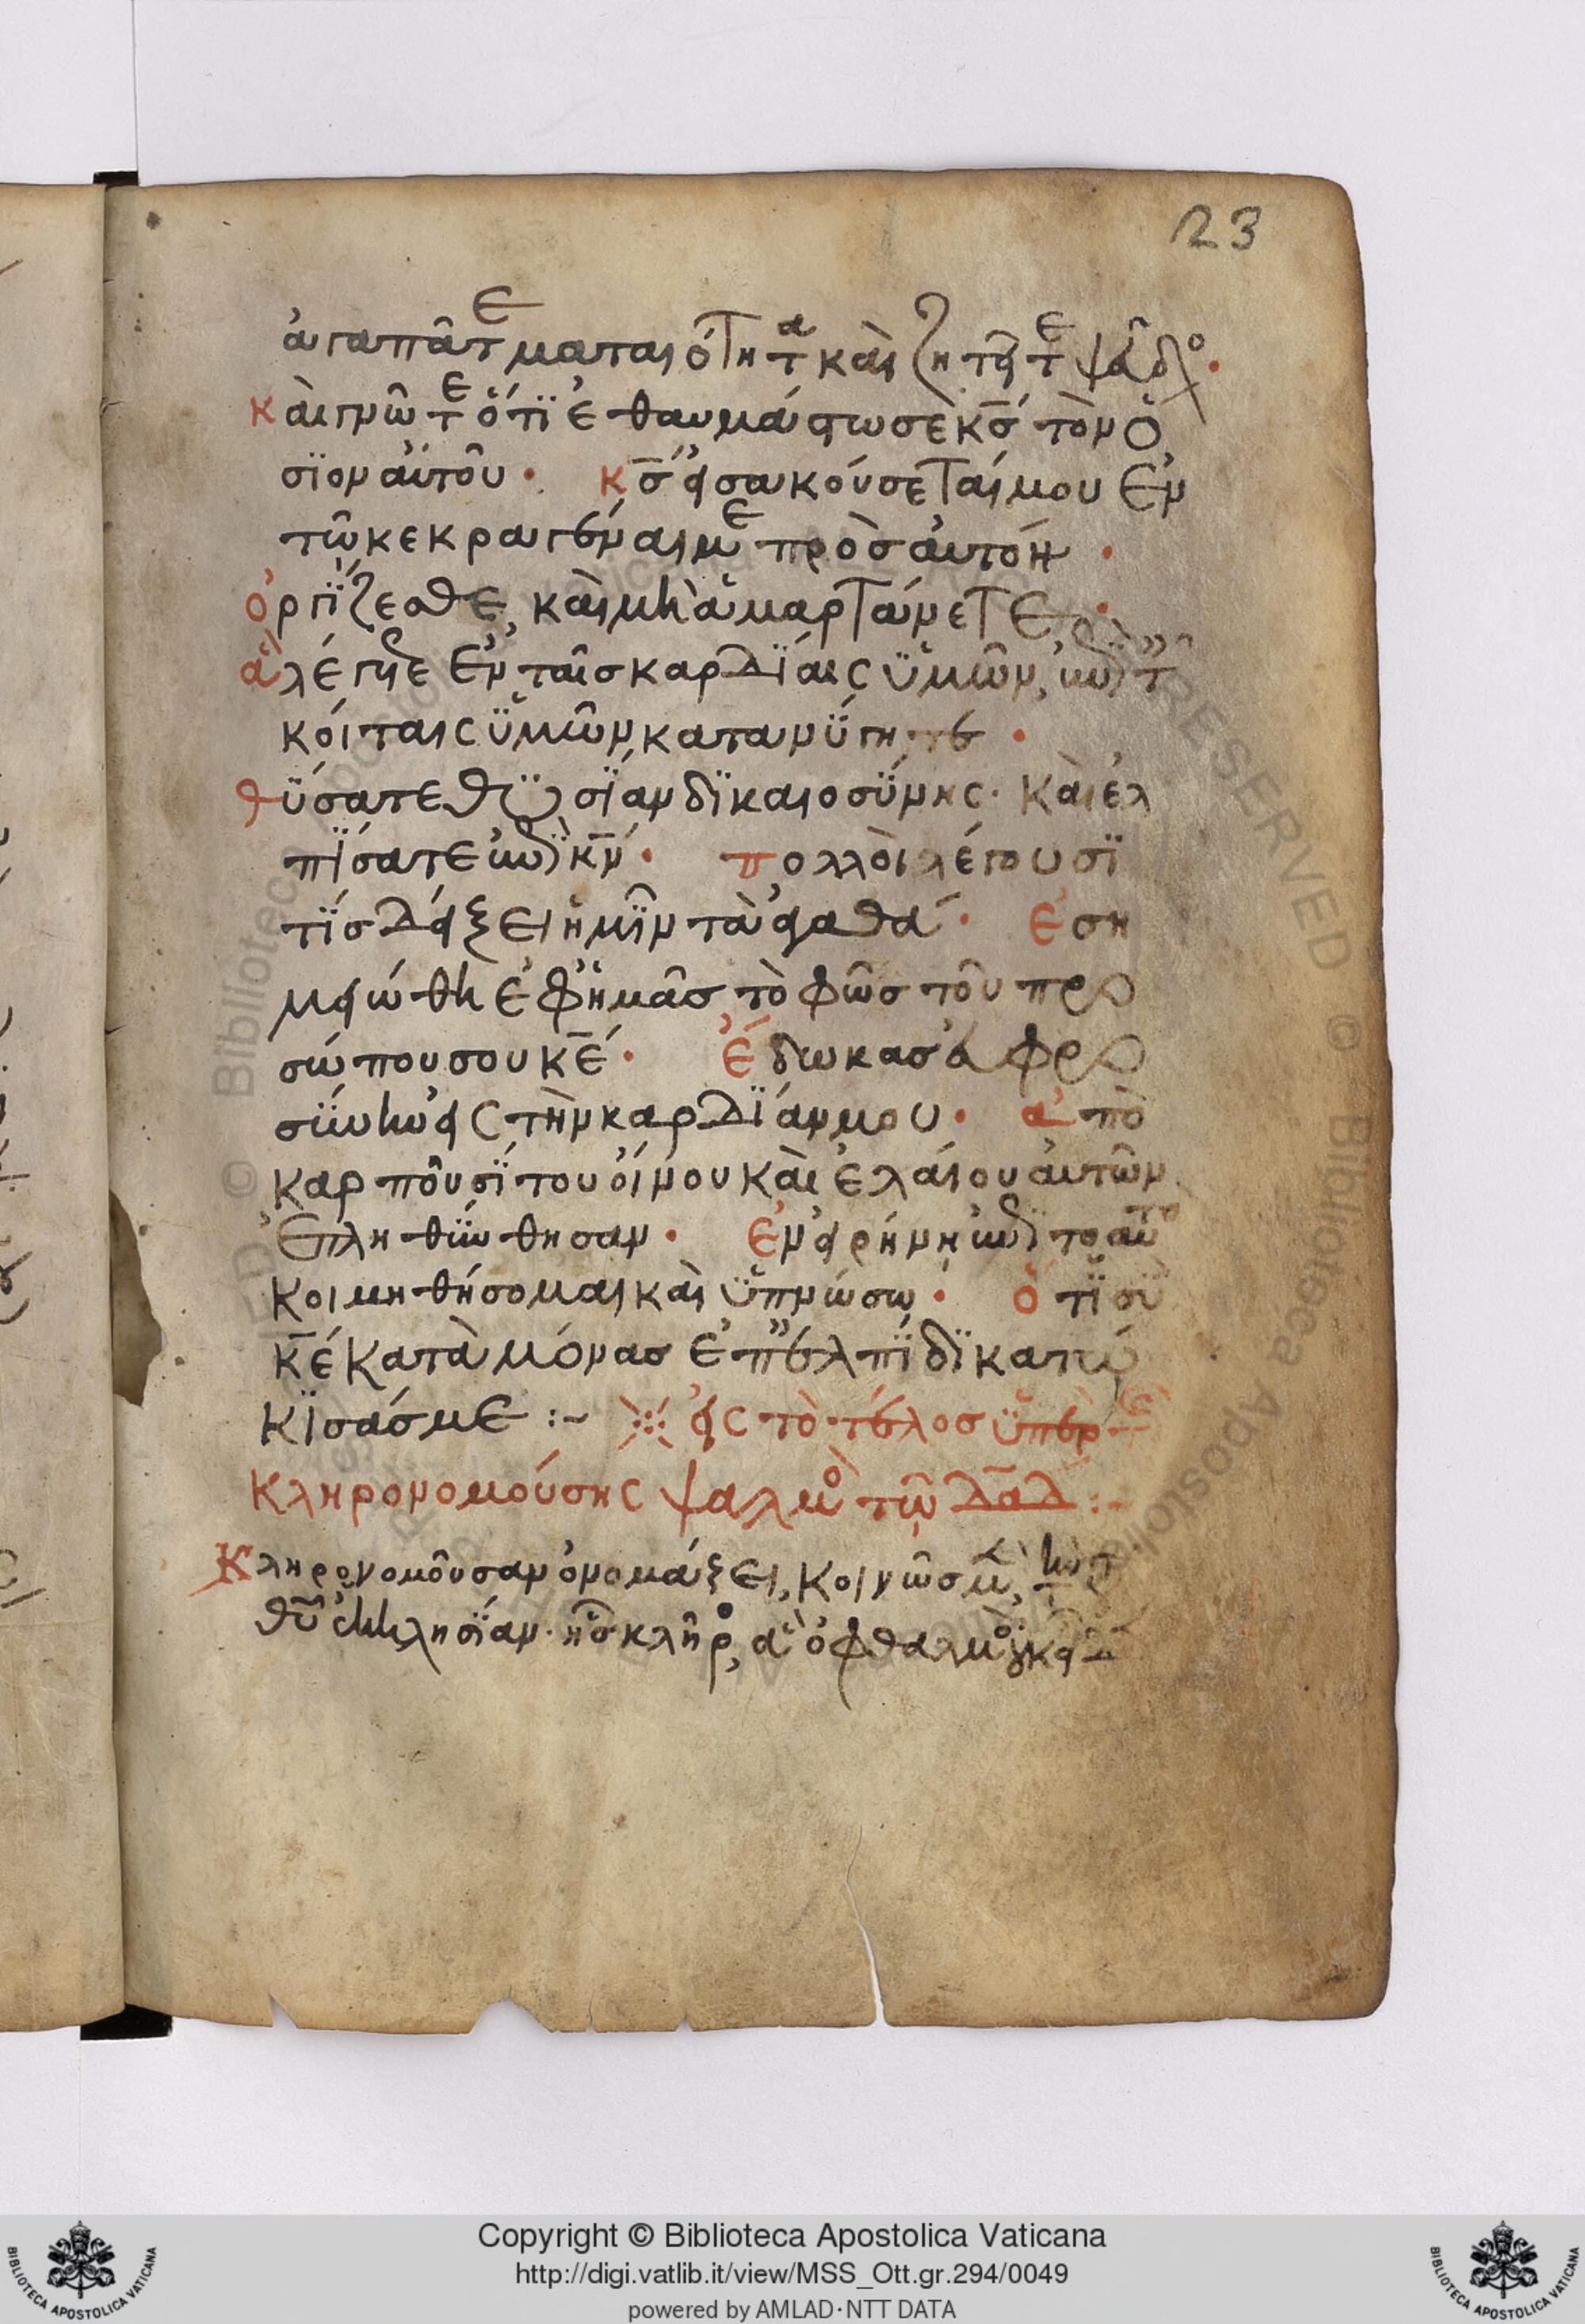 23
ἀγαπᾶτε ματαιότητα καὶ ζητεῖτε ψεῦδος·
καὶ γνῶτε ὅτϊ ἐθαυμάστωσὲ κ̅ς̅ τὸν ὅ
σϊον ἀυτοῦ· κ̅ς̅ εἰσακούσεταί μου ἐν
τῶ κεκραγέναι με πρὸς ἀυτόν·
ὀργίζεσθε, καὶ μὴ ἁμαρτάνετε·
ἃ λέγετε ἐν ταῖς καρδίαις ὑμῶν, ἐπὶ τ
κοίταις ὑμῶν, κατανύγητε·
θύσατε θυσίαν δϊκαιοσύνης· καὶ ἐλ
πίσατε ἐπὶ κ̅ν̅· πολλοὶ λέγουσϊ
τίς δείξει ἡμῖν τὰ ἀγαθά· ἐση
μειώθη ἐφ ἡμᾶς τὸ φῶς τοῦ προ
σώπου σου κ̅ε̅· ἔδωκας ἐυφρο
σύνην εἰς τὴν καρδίαν μου· ἀπὸ
καρποῦ σίτου οἴνου καὶ ἐλαίου ἀυτῶν
ἐπληθύνθησαν· ἐν εἰρήνη ἐπὶ το αυτο
κοιμηθήσομαι καὶ ὑπνώσω· ὅτϊ σὺ
κ̅ε̅ κατὰ μόνας ἐπ ἐλπίδϊ κατώ
κϊσάς με :~ ※ εἰς τὸ τέλος ὑπὲρ τῆς
κληρονομούσης ψαλμὸ τῶ δ̅α̅δ̅ :~
Κληρονομοῦσαν ὀνομάζει, κοινῶς μ, τὴν τ
θ̅υ̅ ἐκκλησίαν· ἧς κλῆρ, ἃ ὀφθαλμὸ οὐκ εἶδ
Copyright © Biblioteca Apostolica Vaticana
http://digi.vatlib.it/view/MSS_Ott.gr.294/0049
powered by AMLAD·NTT DATA